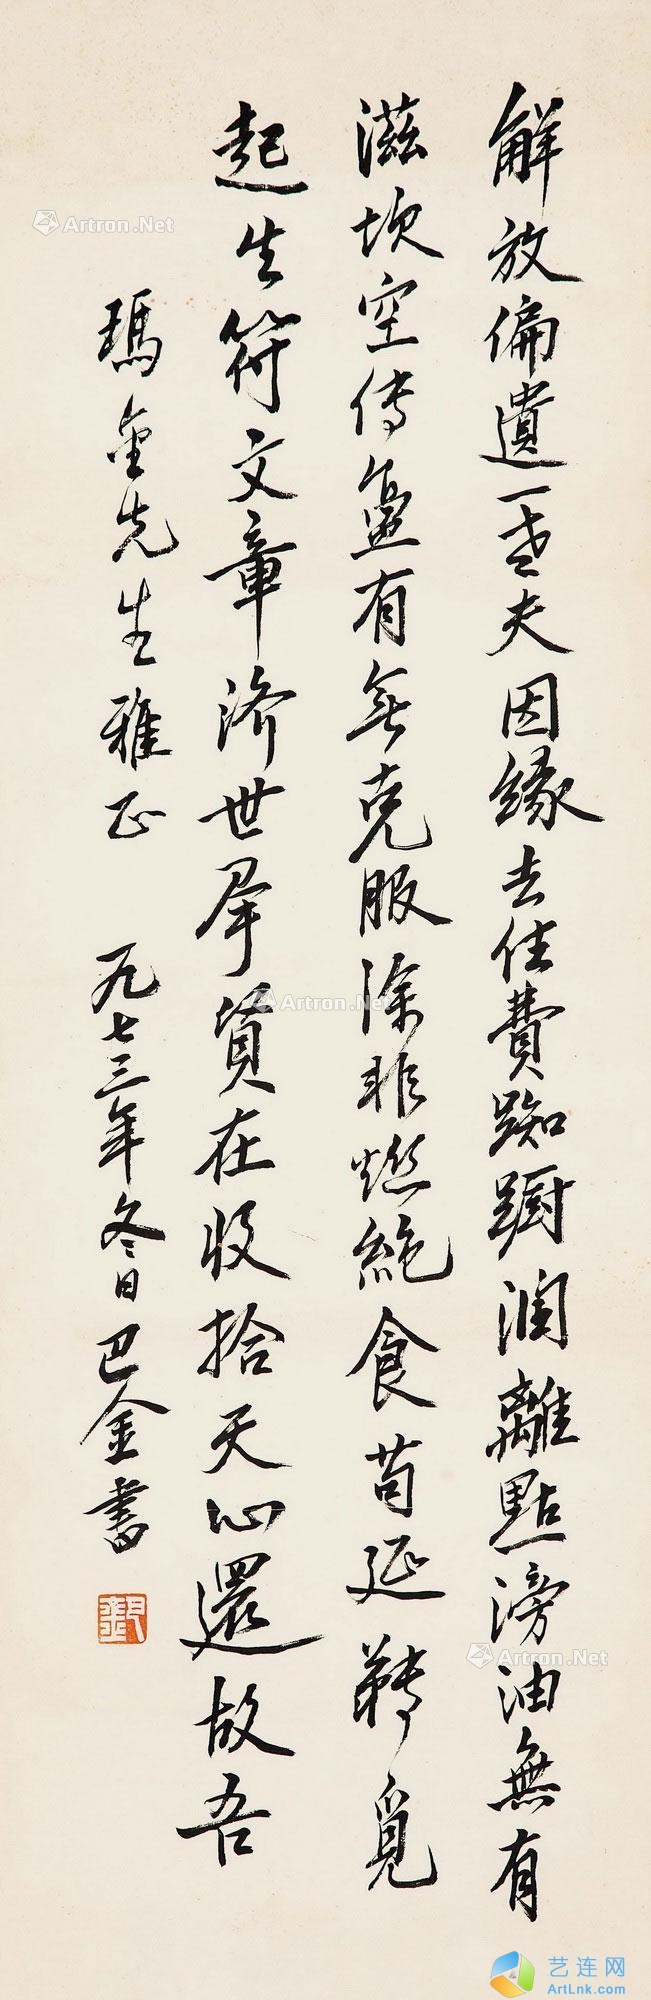 解放偏遺一老夫因緣去住費踟躕潤離點滂油無有
滋坎空傳盈有無克服除非燃絶食苟延轉覓
起生符文章濟世羣貧在收拾天心還故吾
瑪金先生雅正 一九七三年冬日巴金書
Artron.Net
Artron.Net
Artron.Net
艺连网
ArtLnk.com